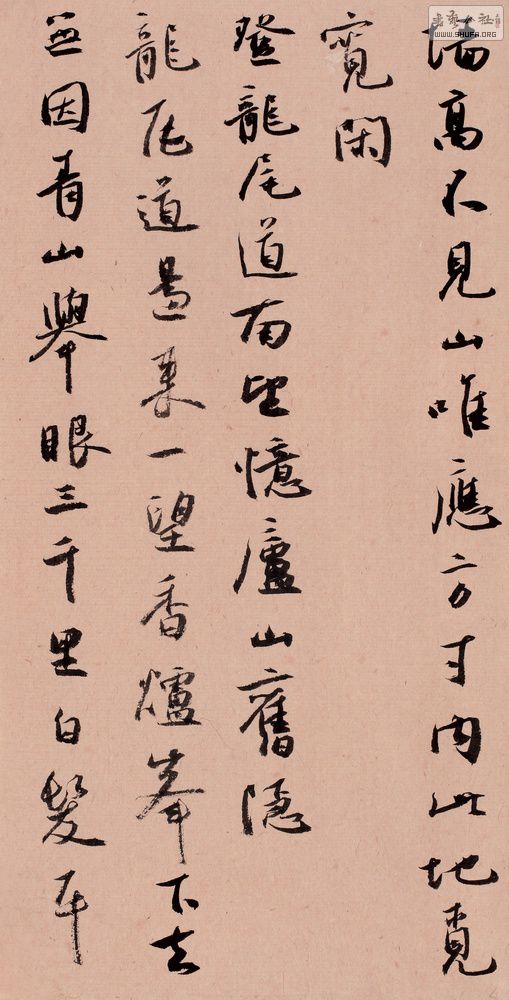 墻高不見山唯應方寸內此地覓
寬閑
登龍尾道南望憶廬山舊隱
龍尾道邊來一望香爐峯下去
無因青山舉眼三千里白髮平
WWW.SHUFA.ORG